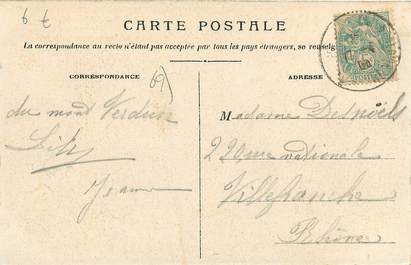 6 €
CARTE POSTALE
La correspondance au recto n'étant pas acceptée par tous les pays étrangers, se renseigner
CORRESPONDANCE
69
ADRESSE
du mont Verdun
Jeanne
Madame Desnoëls
220 rue nationale
Villefranche
Rhône